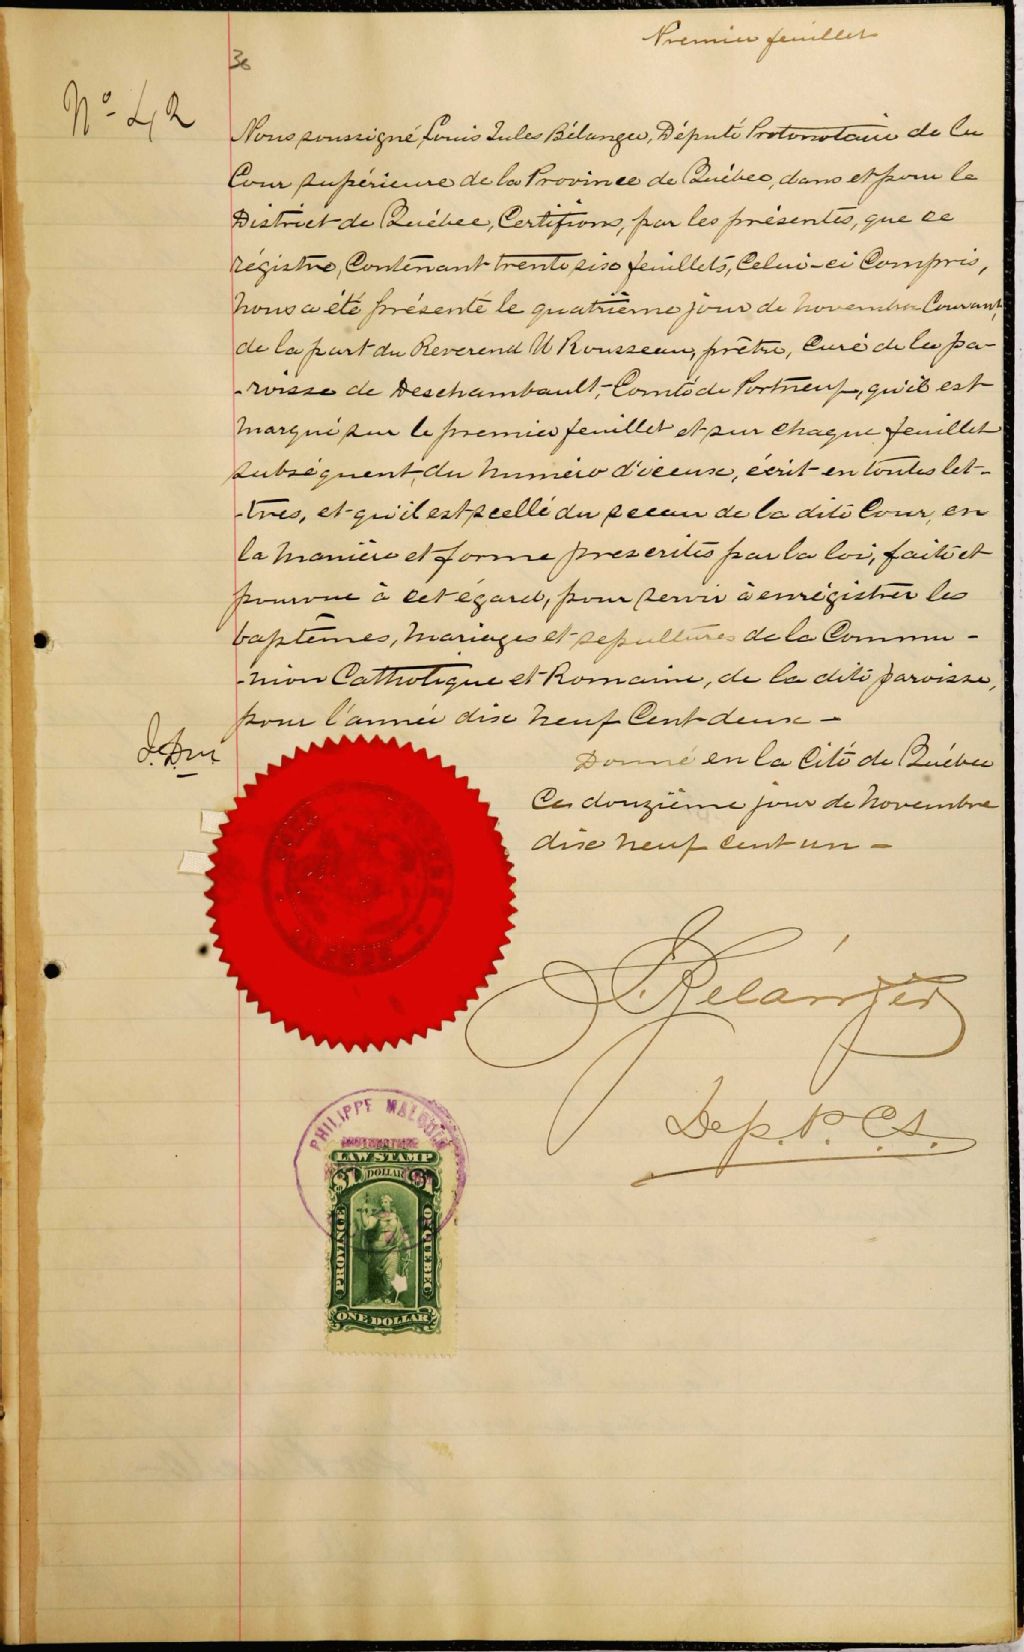 Premier feuillet
36
No 42
Nous soussigné, Louis Jules Bélanger, Député Protonotaire de la
Cour supérieure de la Province de Québec, dans et pour le
District de Québec, Certifions, par les présentes, que ce
régistre, Contenant trente six feuillets, Celui-ci Compris,
nous a été présenté le quatrième jour de novembre Courant,
de la part du Reverend U Rousseau, prêtre, Curé de la pa-
-roisse de Deschambault, Comté de Portneuf, qu'il est
marqué sur le premier feuillet et sur chaque feuillet
subséquent, du numéro d'iceux, écrit en toutes let-
-tres, et qu'il est scellé du sceau de la dite Cour, en
la manière et forme prescrites par la loi, faite et
pourvue à cet égard, pour servir à enrégistrer les
baptêmes, mariages et sepultures de la Commu-
-nion Catholique et Romaine, de la dite paroisse,
pour l'année dix neuf Cent deux –
Donné en la Cité de Québec
Ce douzième jour de novembre
dix neuf cent un –
J. Bélanger
Dep. P. C. S.
PHILIPPE MALOUIN
PROTONOTAIRE
LAW STAMP
$1 DOLLAR $1
PROVINCE
OF QUEBEC
ONE DOLLAR